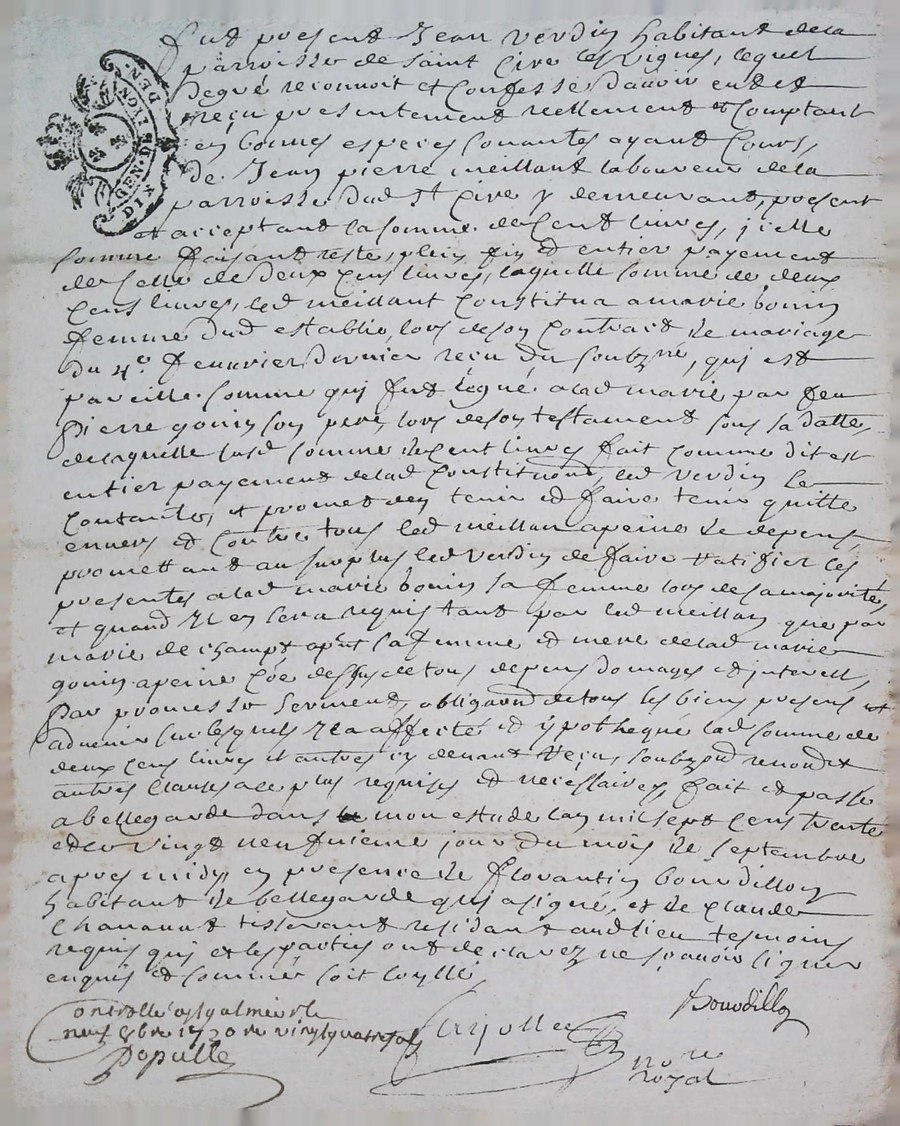 GEN. DE LYON
DIX DEN
fut present Jean verdin habitant de la
parroisse de saint Cire les vignes, lequel
de gré reconnoit et Confesse d'avoir eu et
reçu presentement reellement et Comptant
en bonnes especes sonantes ayant Cours,
de Jean pierre meillant laboureur de la
parroisse dud st Cire y demeurant, present
et acceptant la somme de Cent livres, icelle
somme faisant reste, plein fin et entier payement
de Celle de deux Cens livres, laquelle somme de deux
Cens livres, led meillant Constitua a marie
femme dud establi, lors de son Contract de mariage
du 4e febvrier dernier reçu du soubzné, qui est
pareille somme qui fut légué a lad marie par feu
Pierre gouin son pere, lors de son testament sous sa datte,
de laquelle susd somme de Cent livres fait comme dit est
entier payement de lad Constitution, led verdin se
Contante, et promet d'en tenir et faire tenir quitte
envers et Contre tous led meillan a peine de depens,
promettant au surplus led verdin de faire ratifier ces
presentes a lad marie sa femme lors de sa majorité,
et quand Il en sera requis tant par led meillan que par
marie de champt a sa femme et mere de lad marie
gouin a peine de tous depens domages et interest,
Par promesse serment, obligaon de tous les biens presens et
advenir sur lesquels Il a affecté et ypothequé lad somme de
deux Cens livres et autres cy devant reçus, soubzon renon et
autres Clauses a ce plus requises et necessaires, fait et passé
a bellegarde dans mon estude lan mil sept Cens trente
et le vingt neufvieme jour du mois de septembre
apres midy, en presence de florantin bourdillon
habitant de bellegarde qui a signé, et de Claude
Chavanat tisserant residant aud lieu tesmoins
requis qui et les parties ont declarez ne sçavoir signer
enquis et sommés soit Scyllé
Bourdillon
Controllé a st galmier le
neuf 8bre 1730 re vingt quatre sols
Populle
nore
royal